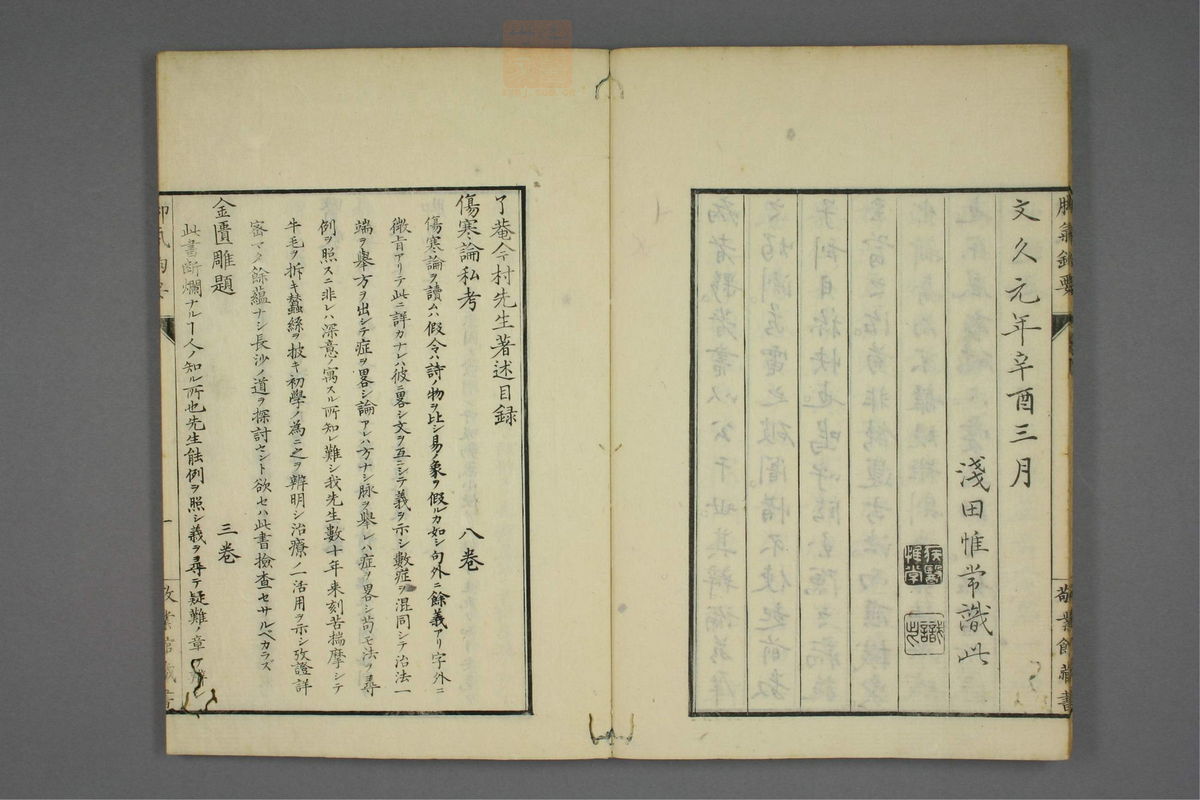 文久元年辛酉三月
淺田惟常識此
敬業館藏書
了菴今村先生著述目録
傷寒論私考　八卷
傷寒論ヲ讀ムハ假令ハ詩ノ物ヲ比シ易ノ象ヲ假ルカ如シ句外ニ餘義アリ字外ニ
微旨アリテ此ニ詳カナレハ彼ニ畧シ文ヲ互ニシテ義ヲ示シ數症ヲ混同シテ治法一
端ヲ舉方ヲ出シテ症ヲ畧シ論アレハ方ナシ脉ヲ舉レハ症ヲ畧シ苟モ法ヲ尋
例ヲ照スニ非レハ深意ノ寓スル所知レ難シ我先生數十年来刻苦揣摩シテ
牛毛ヲ拆キ蠶絲ヲ披キ初學ノ為ニ之ヲ辨明シ治療ノ一活用ヲ示シ攷證詳
密マタ餘蘊ナシ長沙ノ道ヲ探討セント欲セハ此書檢査セサルベカラズ
金匱雕題　三卷
此書断爛ナルヿ人ノ知ル所也先生能例ヲ照シ義ヲ尋テ疑難ノ章
一